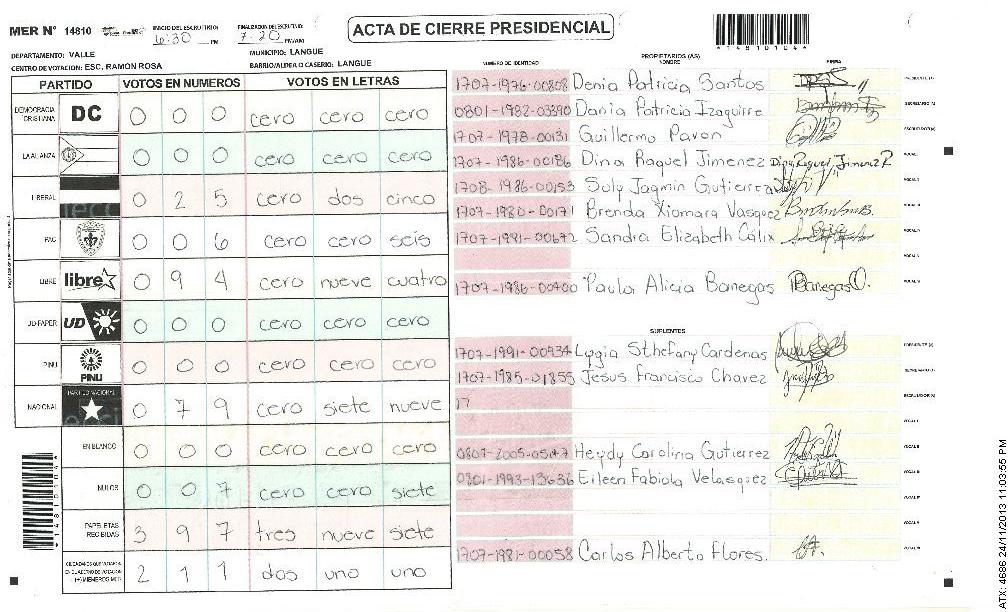 MER N° 14810
INICIO DEL ESCRUTINIO: 6:30 PM
FINALIZACION DEL ESCRUTINIO: 7-20 PM/AM
ACTA DE CIERRE PRESIDENCIAL
*14810104*
DEPARTAMENTO: VALLE
MUNICIPIO: LANGUE
CENTRO DE VOTACION: ESC. RAMON ROSA
BARRIO/ALDEA O CASERIO: LANGUE
PARTIDO VOTOS EN NUMEROS VOTOS EN LETRAS
DEMOCRACIA CRISTIANA DC 0 0 0 cero cero cero
LA ALIANZA 0 0 0 cero cero cero
LIBERAL 0 2 5 cero dos cinco
PAC 0 0 6 cero cero seis
LIBRE libre 0 9 4 cero nueve cuatro
UD-FAPER UD 0 0 0 cero cero cero
PINU PINU 0 0 0 cero cero cero
NACIONAL PARTIDO NACIONAL 0 7 9 cero siete nueve
EN BLANCO 0 0 0 cero cero cero
NULOS 0 0 7 cero cero siete
PAPELETAS RECIBIDAS 3 9 7 tres nueve siete
2 1 1 dos uno uno
NUMERO DE IDENTIDAD PROPIETARIOS (AS) NOMBRE FIRMA
1707-1976-00808 Denia Patricia Santos
0801-1982-03390 Dania Patricia Izaguirre
1707-1978-00131 Guillermo Pavon
1707-1986-00186 Dina Raquel Jimenez Dina Raquel Jimenez R
1708-1986-00153 Suly Jagmin Gutierrez
1707-1980-00171 Brenda Xiomara Vasquez
1707-1981-00672 Sandra Elizabeth Cálix
1707-1986-00400 Paula Alicia Banegas PBanegas O.
SUPLENTES
1707-1991-00934 Lygia Sthefany Cardenas
1707-1985-01855 Jesus Francisco Chavez
17
0807-2005-0547 Heydy Carolina Gutierrez
0801-1993-13636 Eileen Fabiola Velasquez
1707-1981-00058 Carlos Alberto Flores.
*14810104*
ATX: 4686 24/11/2013 11:03:55 PM